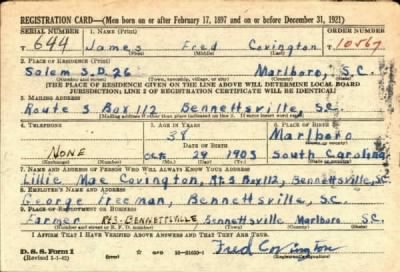 REGISTRATION CARD—(Men born on or after February 17, 1897 and on or before December 31, 1921)
SERIAL NUMBER 1. NAME (Print) ORDER NUMBER
T 644 James Fred Covington T 10567
(First) (Middle) (Last)
2. PLACE OF RESIDENCE (Print)
Salem S.D. 26 Marlboro, S.C.
(Number and street) (Town, township, village, or city) (County) (State)
[THE PLACE OF RESIDENCE GIVEN ON THE LINE ABOVE WILL DETERMINE LOCAL BOARD
JURISDICTION; LINE 2 OF REGISTRATION CERTIFICATE WILL BE IDENTICAL]
3. MAILING ADDRESS
Route 3 Box 112 Bennettsville, S.C.
(Mailing address if other than place indicated on line 2. If same insert word same)
4. TELEPHONE 5. AGE IN YEARS 6. PLACE OF BIRTH
38 Marlboro
DATE OF BIRTH (Town or county)
NONE Oct. 29 1903 South Carolina
(Exchange) (Number) (Mo.) (Day) (Yr.) (State or country)
7. NAME AND ADDRESS OF PERSON WHO WILL ALWAYS KNOW YOUR ADDRESS
Lillie Mae Covington, Rt. 3 Box 112, Bennettsville, S.C.
8. EMPLOYER'S NAME AND ADDRESS
George Freeman, Bennettsville, S.C.
9. PLACE OF EMPLOYMENT OR BUSINESS
Farmer Rt 3- BENNETTSVILLE Bennettsville Marlboro S.C.
(Number and street or R. F. D. number) (Town) (County) (State)
I AFFIRM THAT I HAVE VERIFIED ABOVE ANSWERS AND THAT THEY ARE TRUE.
D. S. S. Form 1
(Revised 1-1-42) (over) 16-21630-1 Fred Covington